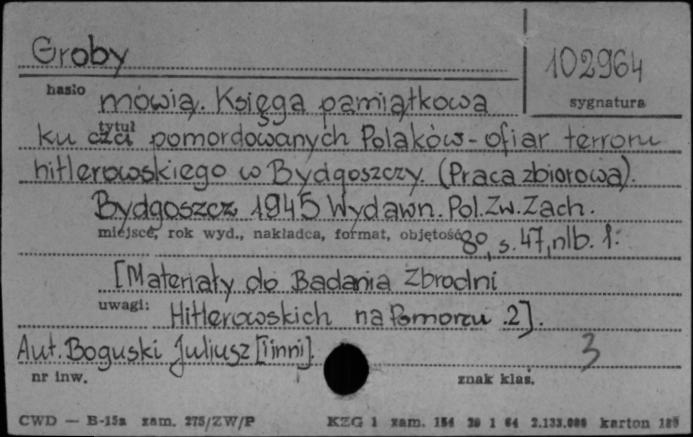 Groby
102964
hasło
sygnatura
mówią. Księga pamiątkowa
tytuł
ku czci pomordowanych Polaków - ofiar terroru
hitlerowskiego w Bydgoszczy. (Praca zbiorowa).
Bydgoszcz 1945 Wydawn. Pol. Zw. Zach.
miejsce, rok wyd., nakładca, format, objętość
8o, s. 47, nlb. 1.
[Materiały do Badania Zbrodni
uwagi:
Hitlerowskich na Pomorzu .2].
Aut. Boguski Juliusz [i inni].
3
nr inw.
znak klas.
CWD — B-15a zam. 275/ZW/P
KZG 1 zam. 154 20 1 64 2.133.000 karton